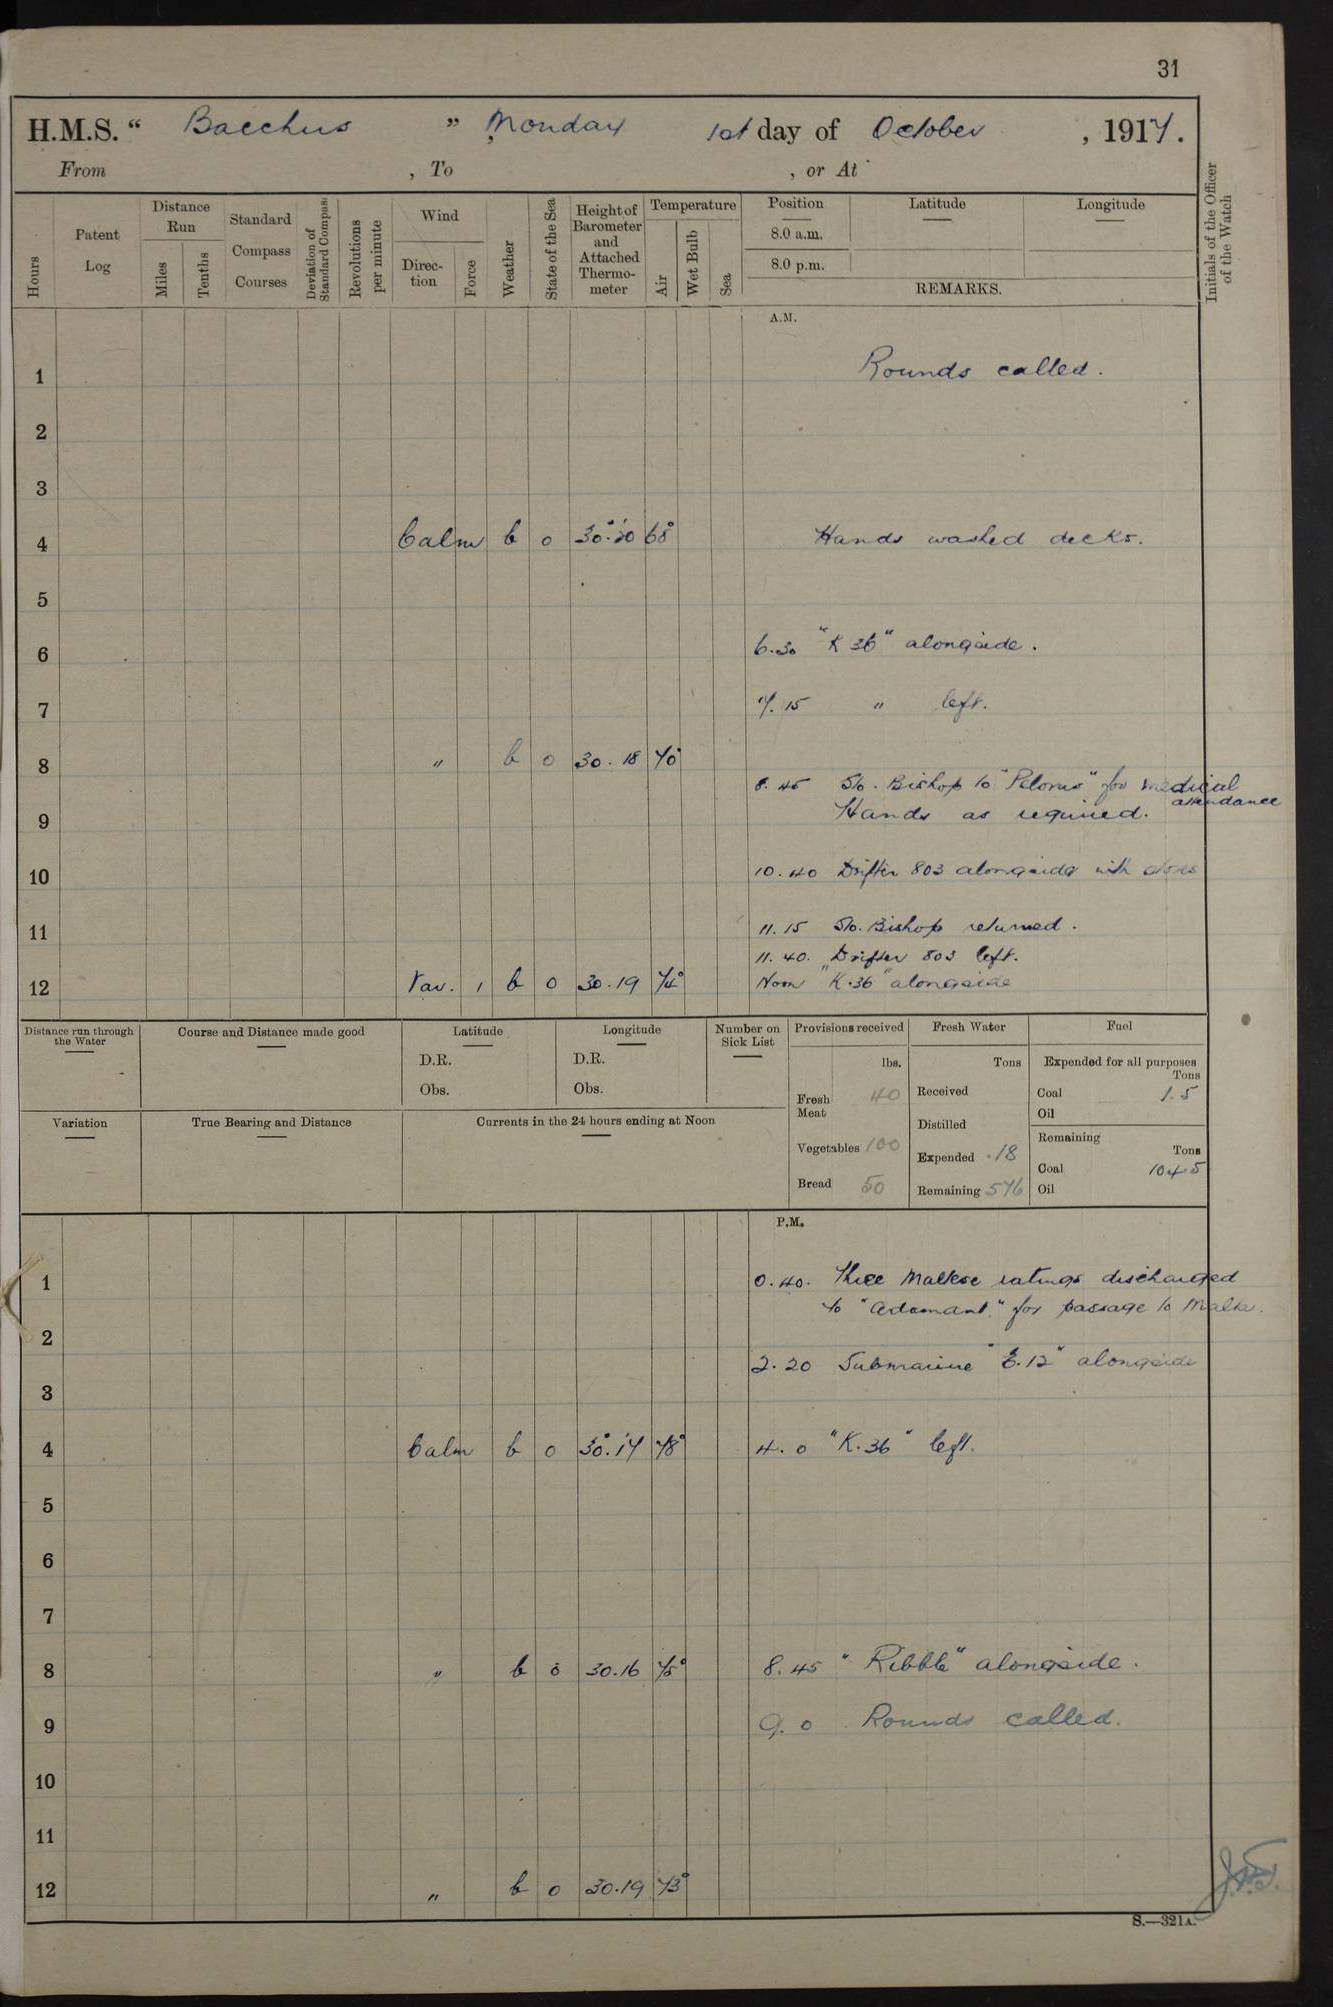 31
H.M.S. " Bacchus " , Monday 1st day of October , 1917.
From , To , or At
Hours
Patent Log
Distance Run
Miles
Tenths
Standard Compass Courses
Deviation of Standard Compass
Revolutions per minute
Wind
Direction
Force
Weather
State of the Sea
Height of Barometer and Attached Thermometer
Temperature
Air
Wet Bulb
Sea
Position
Latitude
Longitude
8.0 a.m.
8.0 p.m.
REMARKS.
Initials of the Officer of the Watch
A.M.
1 Rounds called.
2
3
4 Calm b o 30.20 68° Hands washed decks.
5
6 6.30 "K 36" alongside.
7 7.15 " left.
8 " b o 30.18 70°
8.45 S/o. Bishop to "Pelorus" for medical attendance
9 Hands as required.
10 10.40 Drifter 803 alongside with stores
11 11.15 S/o. Bishop returned.
11.40. Drifter 803 left.
12 Var. 1 b o 30.19 74° Noon "K.36" alongside
Distance run through the Water
Course and Distance made good
Latitude
D.R.
Obs.
Longitude
D.R.
Obs.
Number on Sick List
Provisions received
lbs.
Fresh Meat 40
Vegetables 100
Bread 50
Fresh Water
Tons
Received
Distilled
Expended 18
Remaining 576
Fuel
Expended for all purposes
Tons
Coal 1.5
Oil
Remaining
Tons
Coal 1045
Oil
Variation
True Bearing and Distance
Currents in the 24 hours ending at Noon
P.M.
1 0.40. Three Maltese ratings discharged
to "Adamant" for passage to Malta.
2
2.20 Submarine "E.12" alongside
3
4 Calm b o 30.17 78° 4.0 "K.36" left.
5
6
7
8 " b o 30.16 75° 8.45 "Ribble" alongside.
9 9.0 Rounds called.
10
11
12 " b o 30.19 73°
S.—321A.